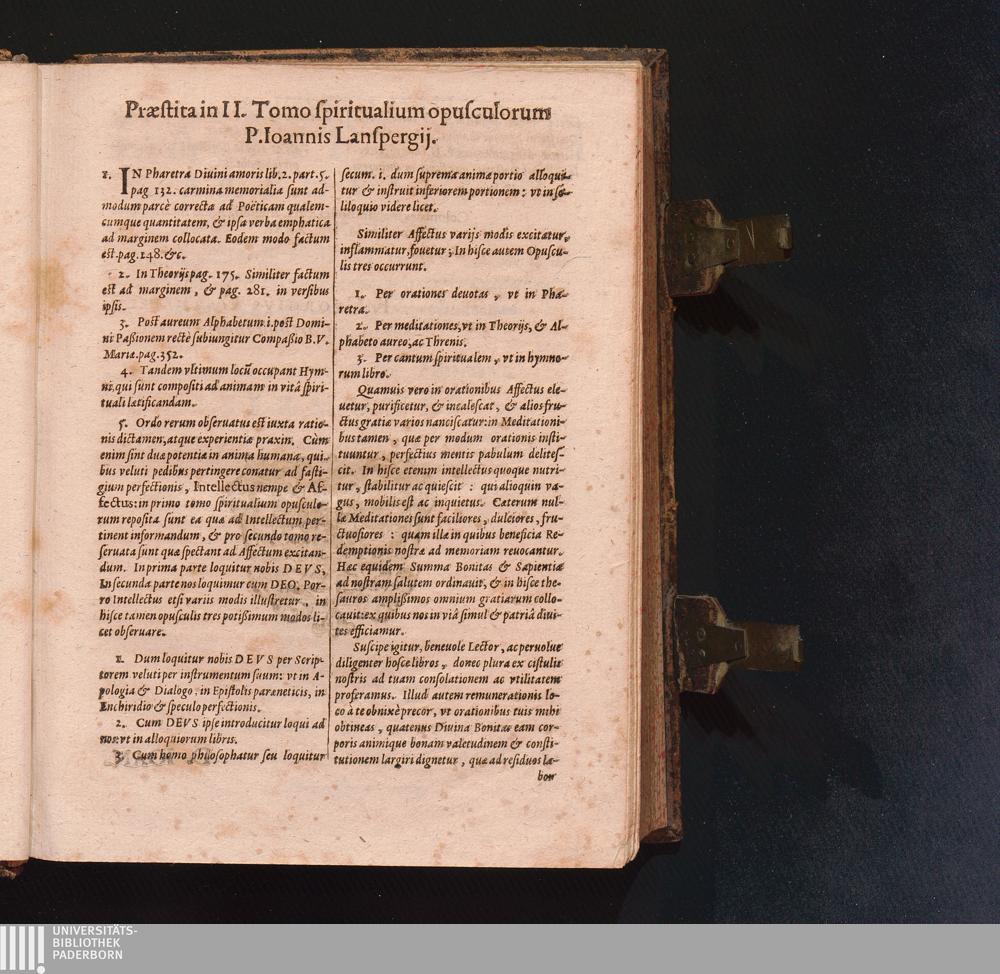 Præstita in II. Tomo ſpiritualium opuſculorum
P. Ioannis Lanſpergij.
1. IN Pharetra Diuini amoris lib. 2. part. 5.
pag 132. carmina memorialia ſunt ad-
modum parcè correcta ad Poëticam qualem-
cumque quantitatem, & ipſa verba emphatica
ad marginem collocata. Eodem modo factum
eſt. pag. 148. &c.
2. In Theorijs pag. 175. Similiter factum
eſt ad marginem, & pag. 281. in verſibus
ipſis.
3. Poſt aureum Alphabetum .i. poſt Domi-
ni Paßionem rectè ſubiungitur Compaßio B. V.
Mariæ. pag. 352.
4. Tandem vltimum locũ occupant Hym-
ni, qui ſunt compoſiti ad animam in vitâ ſpiri-
tuali lætificandam.
5. Ordo rerum obſeruatus eſt iuxta ratio-
nis dictamen, atque experientiæ praxin. Cùm
enim ſint duæ potentiæ in anima humana, qui-
bus veluti pedibus pertingere conatur ad faſti-
gium perfectionis, Intellectus nempe & Af-
fectus: in primo tomo ſpiritualium opuſculo-
rum repoſita ſunt ea quæ ad Intellectum per-
tinent informandum, & pro ſecundo tomo re-
ſeruata ſunt quæ ſpectant ad Affectum excitan-
dum. In prima parte loquitur nobis DEVS,
In ſecunda parte nos loquimur cum DEO. Por-
ro Intellectus etſi variis modis illuſtretur, in
hiſce tamen opuſculis tres potißimum modos li-
cet obſeruare.
1. Dum loquitur nobis DEVS per Scrip-
torem veluti per inſtrumentum ſuum: vt in A-
pologia & Dialogo, in Epiſtolis paræneticis, in
Enchiridio & ſpeculo perfectionis.
2. Cum DEVS ipſe introducitur loqui ad
nos: vt in alloquiorum libris.
3. Cum homo philoſophatur ſeu loquitur
ſecum. i. dum ſuprema animæ portio alloqui-
tur & inſtruit inferiorem portionem: vt in ſo-
liloquio videre licet.
Similiter Affectus varijs modis excitatur,
inflammatur, fouetur; In hiſce autem Opuſcu-
lis tres occurrunt.
1. Per orationes deuotas, vt in Pha-
retra.
2. Per meditationes, vt in Theorijs, & Al-
phabeto aureo, ac Threnis.
3. Per cantum ſpiritualem, vt in hymno-
rum libro.
Quamuis vero in orationibus Affectus ele-
uetur, purificetur, & incaleſcat, & alios fru-
ctus gratiæ varios nanciſcatur: in Meditationi-
bus tamen, quæ per modum orationis inſti-
tuuntur, perfectius mentis pabulum delites-
cit. In hiſce etenim intellectus quoque nutri-
tur, ſtabilitur ac quieſcit: qui alioquin va-
gus, mobilis eſt ac inquietus. Cæterum nul-
læ Meditationes ſunt faciliores, dulciores, fru-
ctuoſiores: quam illæ in quibus beneficia Re-
demptionis noſtræ ad memoriam reuocantur.
Hæc equidem Summa Bonitas & Sapientia
ad noſtram ſalutem ordinauit, & in hiſce the-
ſauros amplißimos omnium gratiarum collo-
cauit: ex quibus nos in viâ ſimul & patriâ diui-
tes efficiamur.
Suſcipe igitur, beneuole Lector, ac peruolue
diligenter hoſce libros, donec plura ex ciſtulis
noſtris ad tuam conſolationem ac vtilitatem
proferamus. Illud autem remunerationis lo-
co à te obnixè precor, vt orationibus tuis mihi
obtineas, quatenus Diuina Bonitas eam cor-
poris animique bonam valetudinem & conſti-
tutionem largiri dignetur, quæ ad reſiduos la-
bor
UNIVERSITÄTS-
BIBLIOTHEK
PADERBORN